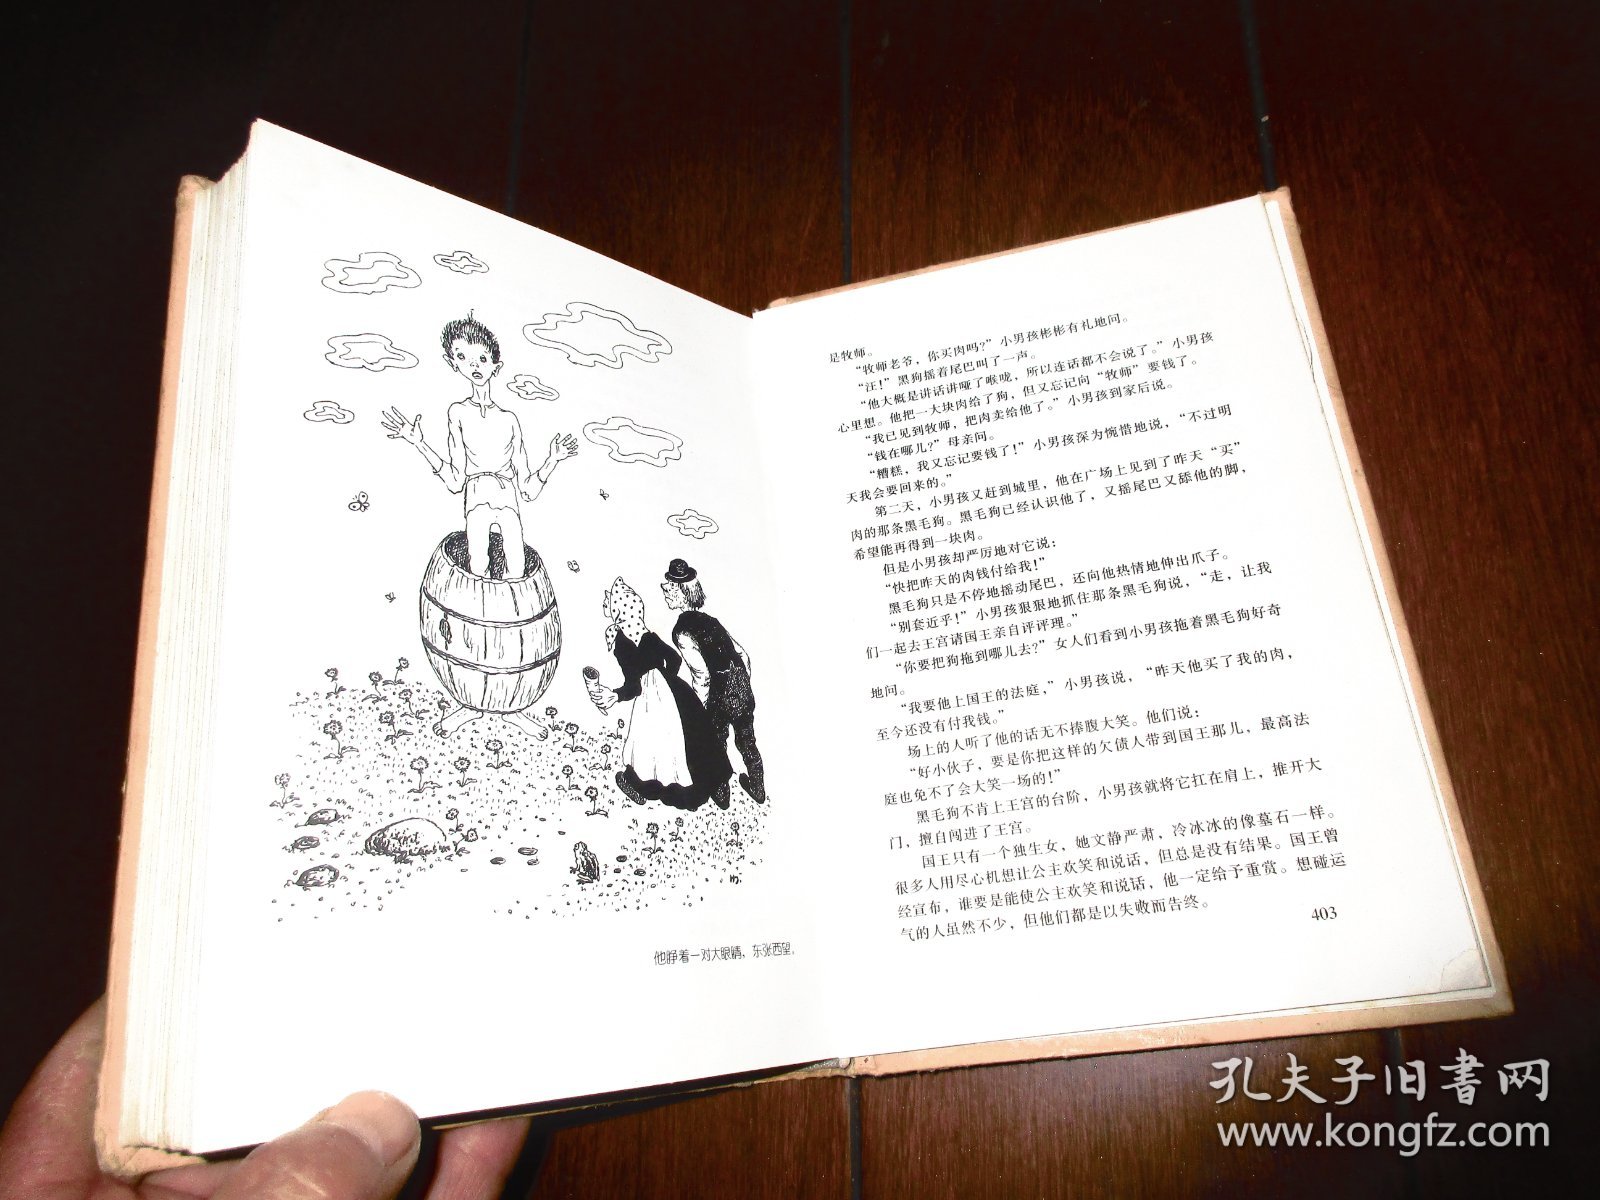 他睁着一对大眼睛，东张西望。
是牧师。
“牧师老爷，你买肉吗？”小男孩彬彬有礼地问。
“汪！”黑狗摇着尾巴叫了一声。
“他大概是讲话讲哑了喉咙，所以连话都不会说了。”小男孩
心里想。他把一大块肉给了狗，但又忘记向“牧师”要钱了。
“我已见到牧师，把肉卖给他了。”小男孩到家后说。
“钱在哪儿？”母亲问。
“糟糕，我又忘记要钱了！”小男孩深为惋惜地说，“不过明
天我会要回来的。”
第二天，小男孩又赶到城里，他在广场上见到了昨天“买”
肉的那条黑毛狗。黑毛狗已经认识他了，又摇尾巴又舔他的脚，
希望能再得到一块肉。
但是小男孩却严厉地对它说：
“快把昨天的肉钱付给我！”
黑毛狗只是不停地摇动尾巴，还向他热情地伸出爪子。
“别套近乎！”小男孩狠狠地抓住那条黑毛狗说，“走，让我
们一起去王宫请国王亲自评评理。”
“你要把狗拖到哪儿去？”女人们看到小男孩拖着黑毛狗好奇
地问。
“我要他上国王的法庭，”小男孩说，“昨天他买了我的肉，
至今还没有付我钱。”
场上的人听了他的话无不捧腹大笑。他们说：
“好小伙子，要是你把这样的欠债人带到国王那儿，最高法
庭也免不了会大笑一场的！”
黑毛狗不肯上王宫的台阶，小男孩就将它扛在肩上，推开大
门，擅自闯进了王宫。
国王只有一个独生女，她文静严肃，冷冰冰的像墓石一样。
很多人用尽心机想让公主欢笑和说话，但总是没有结果。国王曾
经宣布，谁要是能使公主欢笑和说话，他一定给予重赏。想碰运
气的人虽然不少，但他们都是以失败而告终。
403
孔夫子旧書网
www.kongfz.com